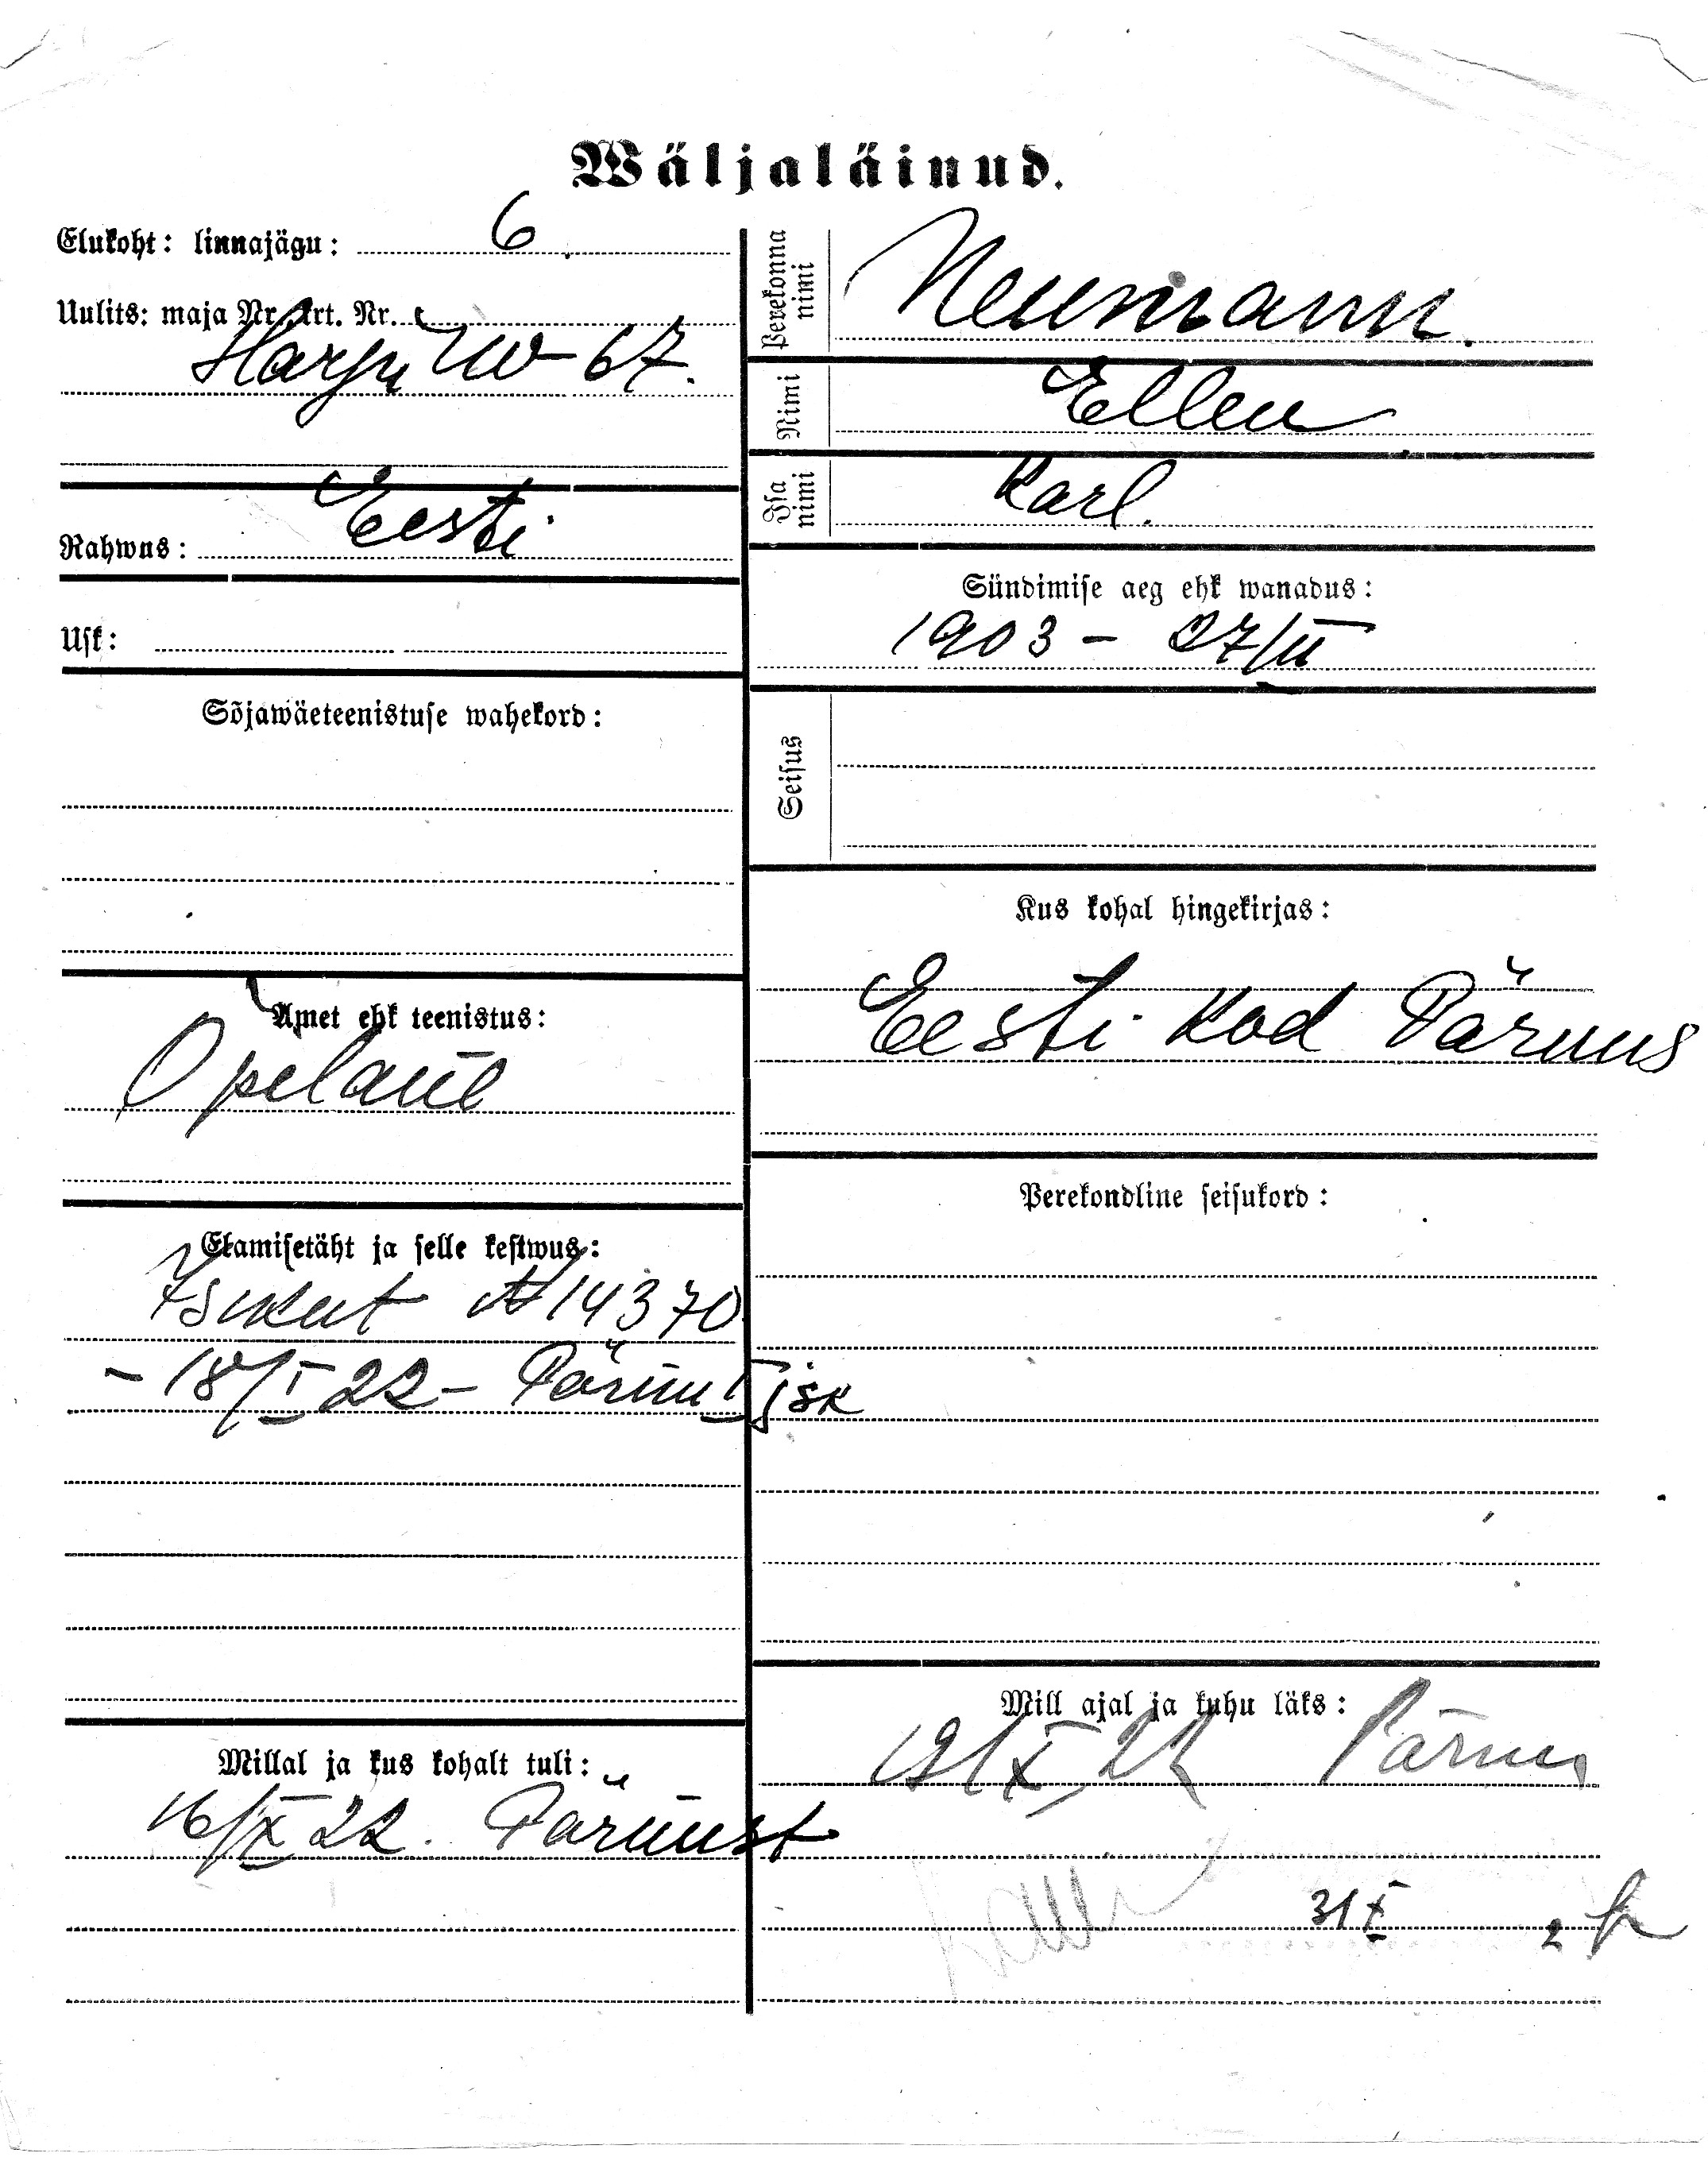 Wäljaläinud.
Elukoht: linnajägu: 6
Uulits: maja Nr. krt. Nr.
Harju 67.
Rahwus: Eesti
Usk:
Sõjawäeteenistuse wahekord:
Amet ehk teenistus:
Õpelane
Elamisetäht ja selle kestwus:
Isikut № 14370
- 18/I 22 - Pärnu I jsk
Millal ja kus kohalt tuli:
16/X 22. Pärnust
Perekonna nimi
Neumann.
Nimi
Ellen
Isa nimi
Karl.
Sündimise aeg ehk wanadus:
1903 - 27/II
Seisus
Kus kohal hingekirjas:
Eesti kod Pärnus
Perekondline seisukord:
Mill ajal ja kuhu läks:
19/X 22 Pärnu
31 X
2